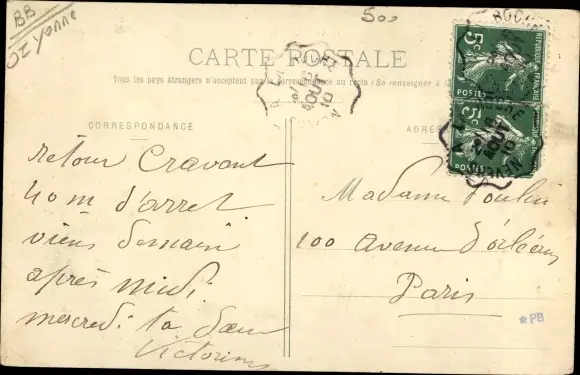 BB
Yonne
500
CARTE POSTALE
Tous les pays étrangers n'acceptent pas la correspondance au recto (Se renseigner à la
CORRESPONDANCE
ADRES
retour Cravant
40 m d'arret
viens demain
après midi
mercredi ta sœur
Victorine
Madame Poulin
100 Avenue d'orléans
Paris
5c
REPUBLIQUE FRANÇAISE
POSTES
5c
POSTES
16
AOUT
10
*PB